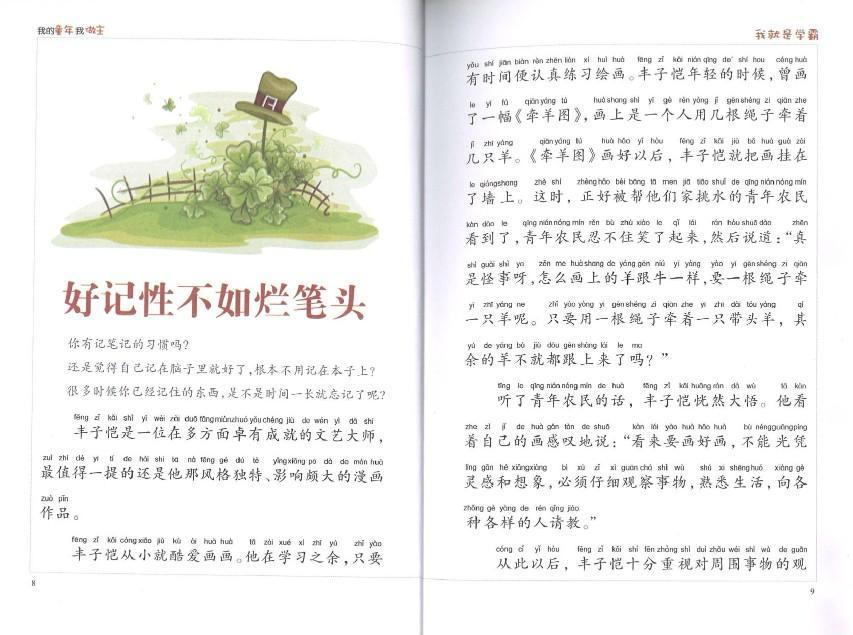 我的童年我做主
好记性不如烂笔头
你有记笔记的习惯吗？
还是觉得自己记在脑子里就好了，根本不用记在本子上？
很多时候你已经记住的东西，是不是时间一长就忘记了呢？
fēng zǐ kǎi shì yí wèi zài duō fāng miàn zhuó yǒu chéng jiù de wén yì dà shī
丰子恺是一位在多方面卓有成就的文艺大师，
zuì zhí dé yì tí de hái shi tā nà fēng gé dú tè yǐng xiǎng pō dà de màn huà
最值得一提的还是他那风格独特、影响颇大的漫画
zuò pǐn
作品。
fēng zǐ kǎi cóng xiǎo jiù kù ài huà huà tā zài xué xí zhī yú zhǐ yào
丰子恺从小就酷爱画画。他在学习之余，只要
8
我就是学霸
yǒu shí jiān biàn rèn zhēn liàn xí huì huà fēng zǐ kǎi nián qīng de shí hou céng huà
有时间便认真练习绘画。丰子恺年轻的时候，曾画
le yì fú qiān yáng tú huà shang shì yí gè rén yòng jǐ gēn shéng zi qiān zhe
了一幅《牵羊图》，画上是一个人用几根绳子牵着
jǐ zhī yáng qiān yáng tú huà hǎo yǐ hòu fēng zǐ kǎi jiù bǎ huà guà zài
几只羊。《牵羊图》画好以后，丰子恺就把画挂在
le qiáng shang zhè shí zhèng hǎo bèi bāng tā men jiā tiāo shuǐ de qīng nián nóng mín
了墙上。这时，正好被帮他们家挑水的青年农民
kàn dào le qīng nián nóng mín rěn bú zhù xiào le qǐ lái rán hòu shuō dào zhēn
看到了，青年农民忍不住笑了起来，然后说道：“真
shì guài shì ya zěn me huà shang de yáng gēn niú yí yàng yào yì gēn shéng zi qiān
是怪事呀，怎么画上的羊跟牛一样，要一根绳子牵
yì zhī yáng ne zhǐ yào yòng yì gēn shéng zi qiān zhe yì zhī dài tóu yáng qí
一只羊呢。只要用一根绳子牵着一只带头羊，其
yú de yáng bú jiù dōu gēn shàng lái le ma
余的羊不就都跟上来了吗？”
tīng le qīng nián nóng mín de huà fēng zǐ kǎi huǎng rán dà wù tā kàn
听了青年农民的话，丰子恺恍然大悟。他看
zhe zì jǐ de huà gǎn tàn de shuō kàn lái yào huà hǎo huà bù néng guāng píng
着自己的画感叹地说：“看来要画好画，不能光凭
líng gǎn hé xiǎng xiàng bì xū zǐ xì guān chá shì wù shú xi shēng huó xiàng gè
灵感和想象，必须仔细观察事物，熟悉生活，向各
zhǒng gè yàng de rén qǐng jiào
种各样的人请教。”
cóng cǐ yǐ hòu fēng zǐ kǎi shí fēn zhòng shì duì zhōu wéi shì wù de guān
从此以后，丰子恺十分重视对周围事物的观
9